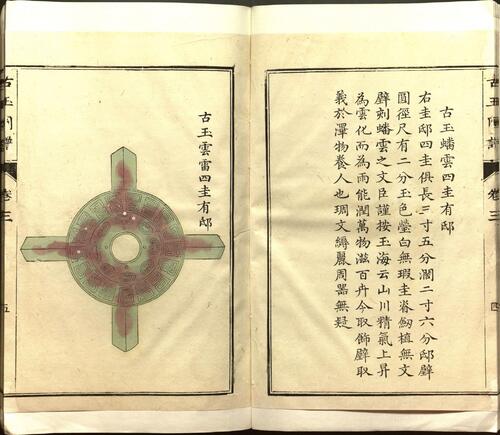 古玉圖譜 卷三 四
古玉蟠雲四圭有邸
右圭邸四圭俱長三寸五分濶二寸六分邸璧
圓徑尺有二分玉色瑩白無瑕圭脊劒植無文
璧刻蟠雲之文臣謹按玉海云山川精氣上昇
為雲化而為雨能潤萬物滋百卉今取飾璧取
義於澤物養人也琱文縟麗周器無疑
古玉雲雷四圭有邸
古玉圖譜 卷三 五